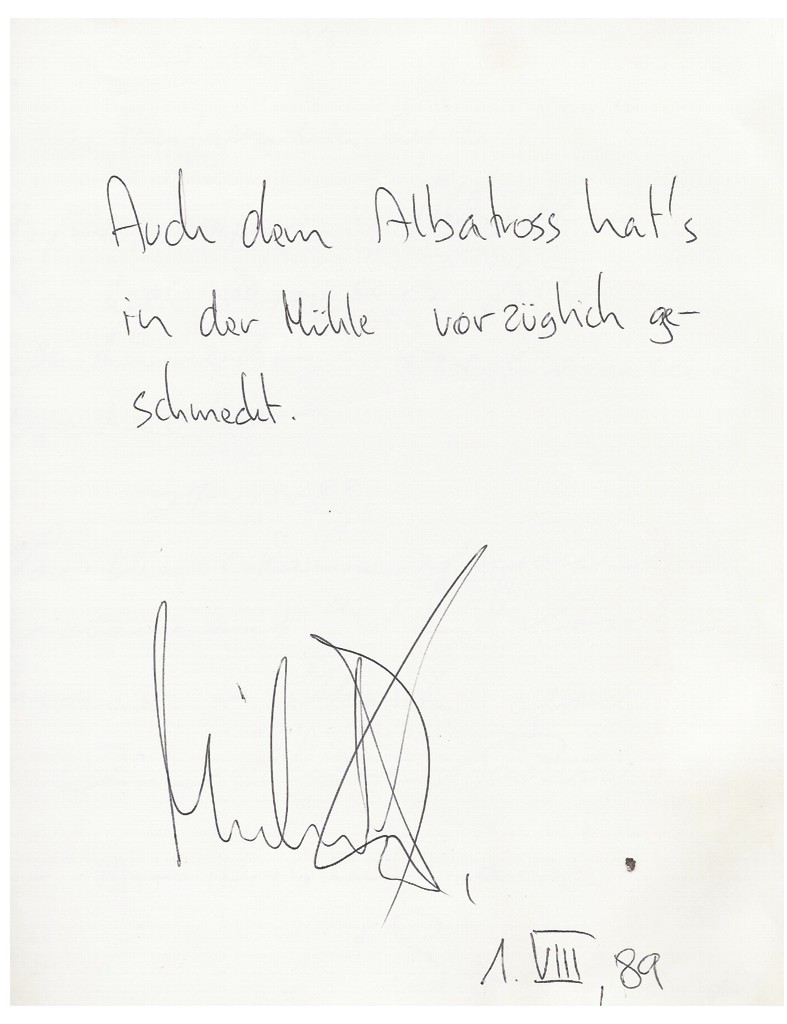 Auch dem Albatross hat's
in der Mühle vorzüglich ge-
schmeckt.
1. VIII, 89